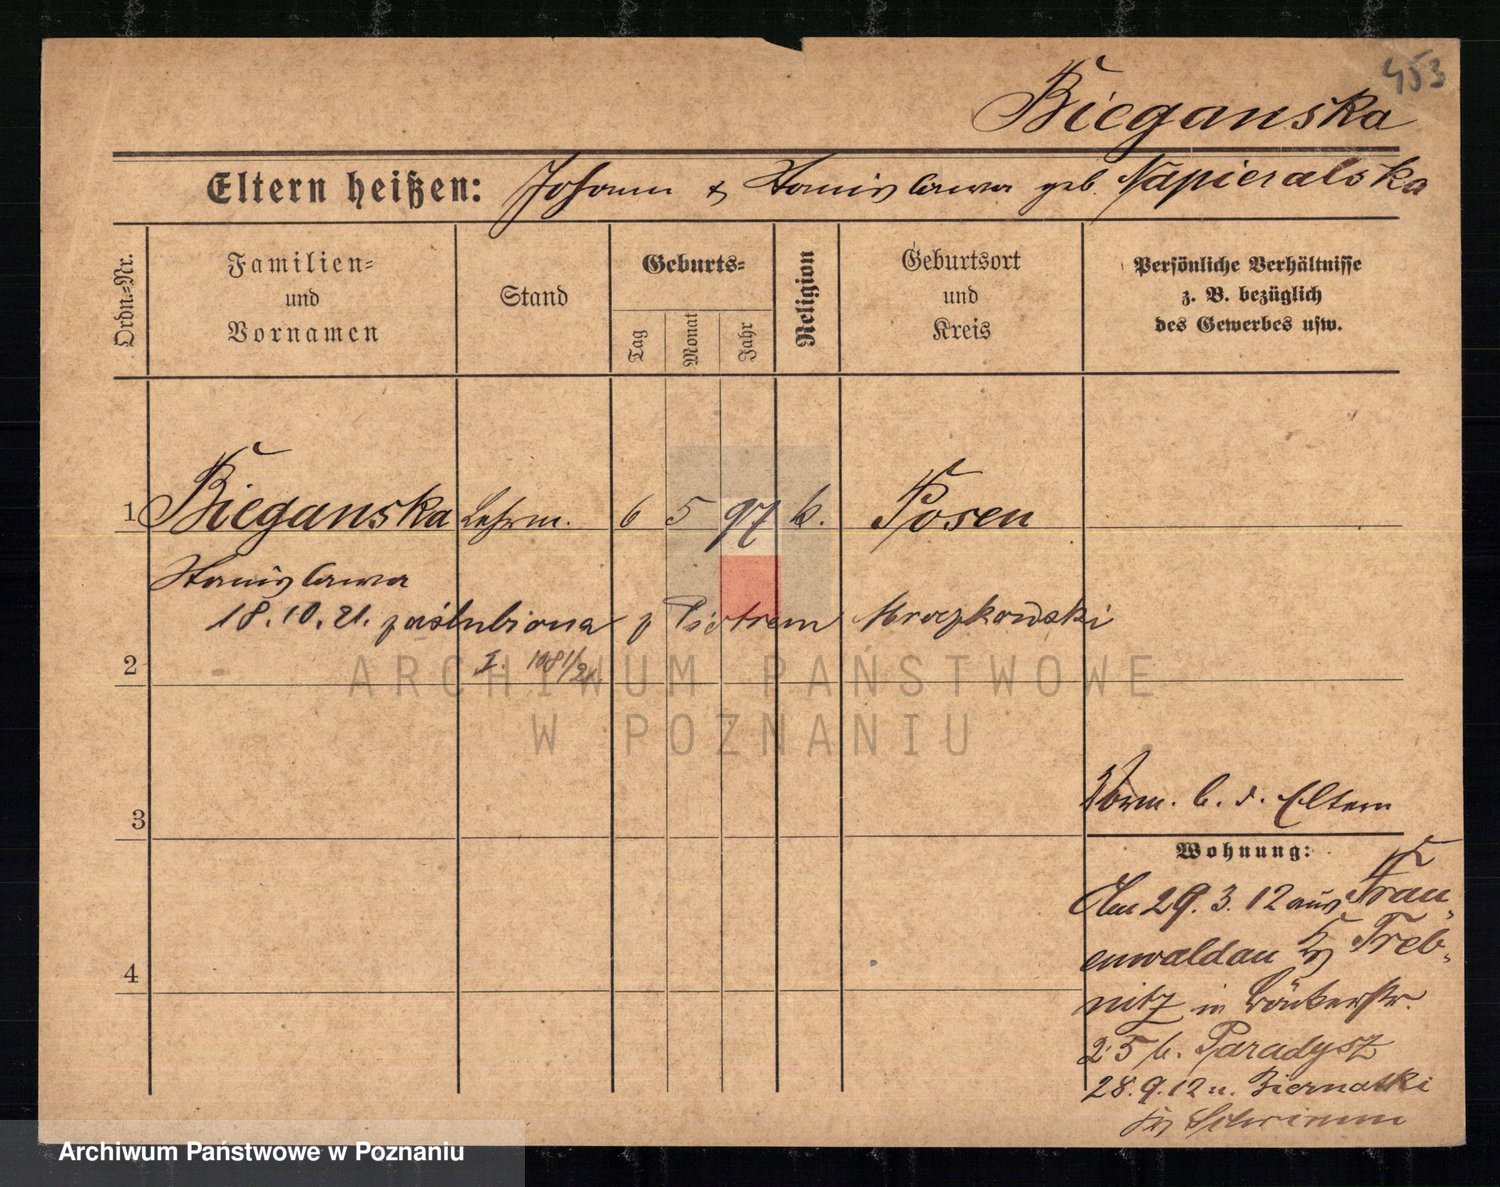 453
Bieganska
Eltern heißen: Johann & Stanislawa geb. Napieralska
Ordn.-Nr.
Familien-
und
Vornamen
Stand
Geburts-
Tag
Monat
Jahr
Religion
Geburtsort
und
Kreis
Persönliche Verhältnisse
z. B. bezüglich
des Gewerbes usw.
1 Bieganska Lehrm. 6 5 97 k. Posen
Stanislawa
18.10.21. zaślubiona z Piotrem Mroczkowski
I. 1181/21.
2
ARCHIWUM PAŃSTWOWE
W POZNANIU
3
Vorm. b. d. Eltern
Wohnung:
Am 29.3.12 aus Frau-
enwaldau Kr Treb-
nitz in
25 b. Paradysz
28.9.12 n. Biernatki
Kr Schrimm
4
Archiwum Państwowe w Poznaniu